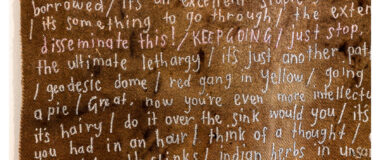 borrowed / it's an excellent
/ it's something to go through / the exten
disseminate this! / KEEP GOING / just stop,
the ultimate lethargy / it's just another pat
/ geodesic dome / red gang in yellow / going
a pie / Great, now you're even more intellectu
it's hairy / do it over the sink would you / it's
you had in an hour / think of a thought /
stinks / indian herbs in uns